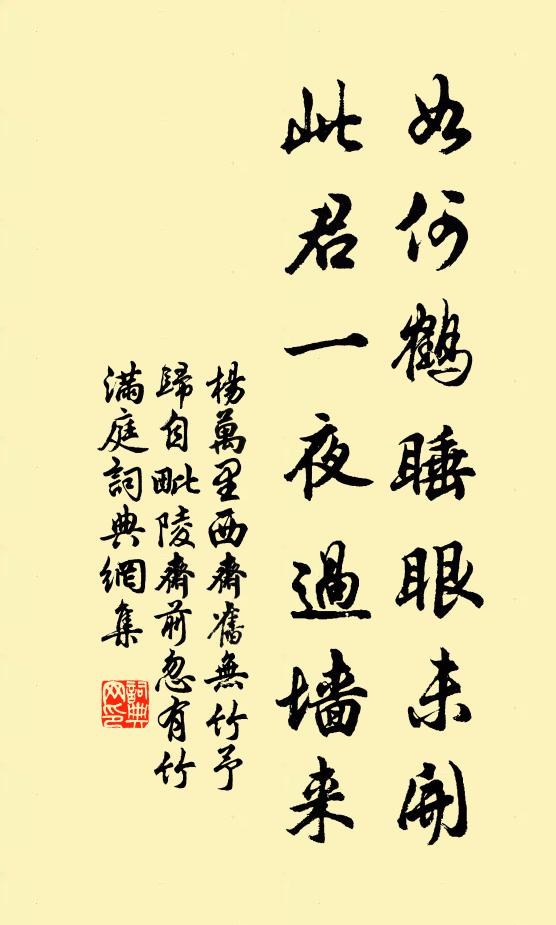 如何鶴睡眼未開
此君一夜過墻来
楊萬里西齋舊無竹予
歸自毗陵齋前忽有竹
滿庭詞典網集
詞典
网印